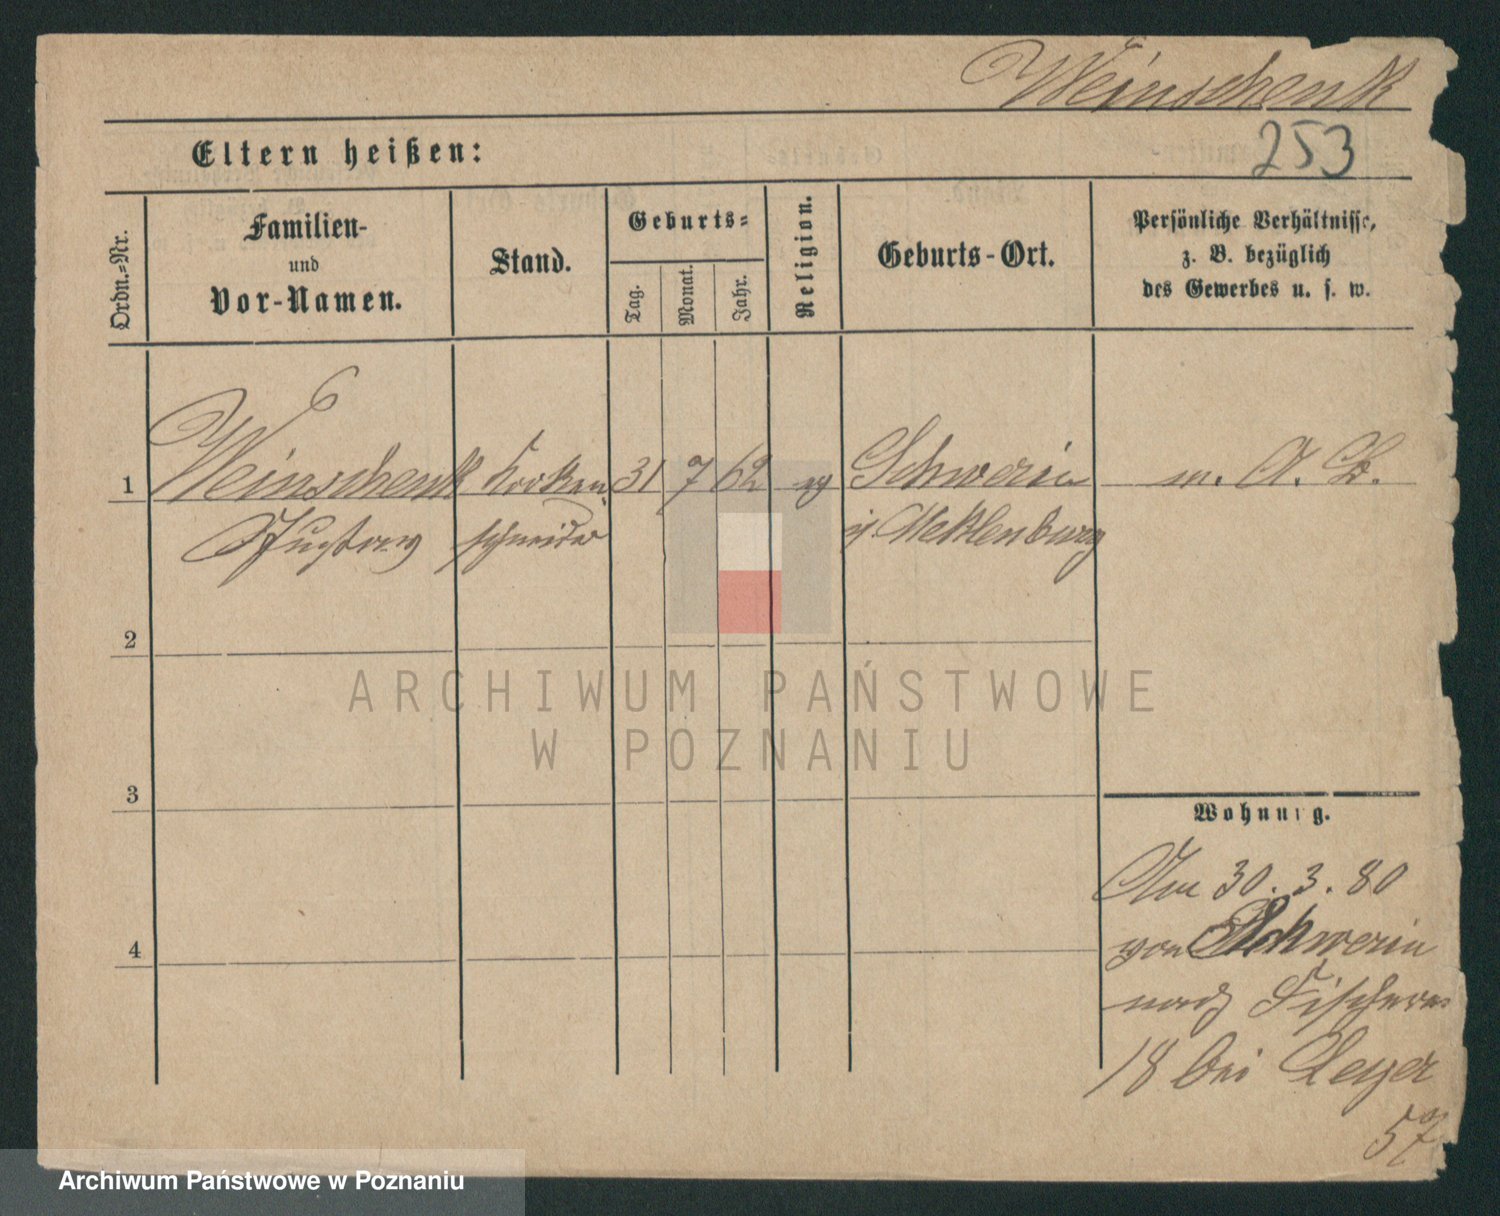 Weinschenk
253
Eltern heißen:
Ordn.-Nr.
Familien-
und
Vor-Namen.
Stand.
Geburts-
Tag.
Monat.
Jahr.
Religion.
Geburts-Ort.
Persönliche Verhältnisse,
z. B. bezüglich
des Gewerbes u. s. w.
1 Weinschenk Korken 31 7 62 Schwerin m. A. B.
Gustav schneider Meklenburg
2
ARCHIWUM PAŃSTWOWE
W POZNANIU
3
Wohnung.
30. 3. 80
4 von Schwerin
nach
18 bei Leyer
57
Archiwum Państwowe w Poznaniu